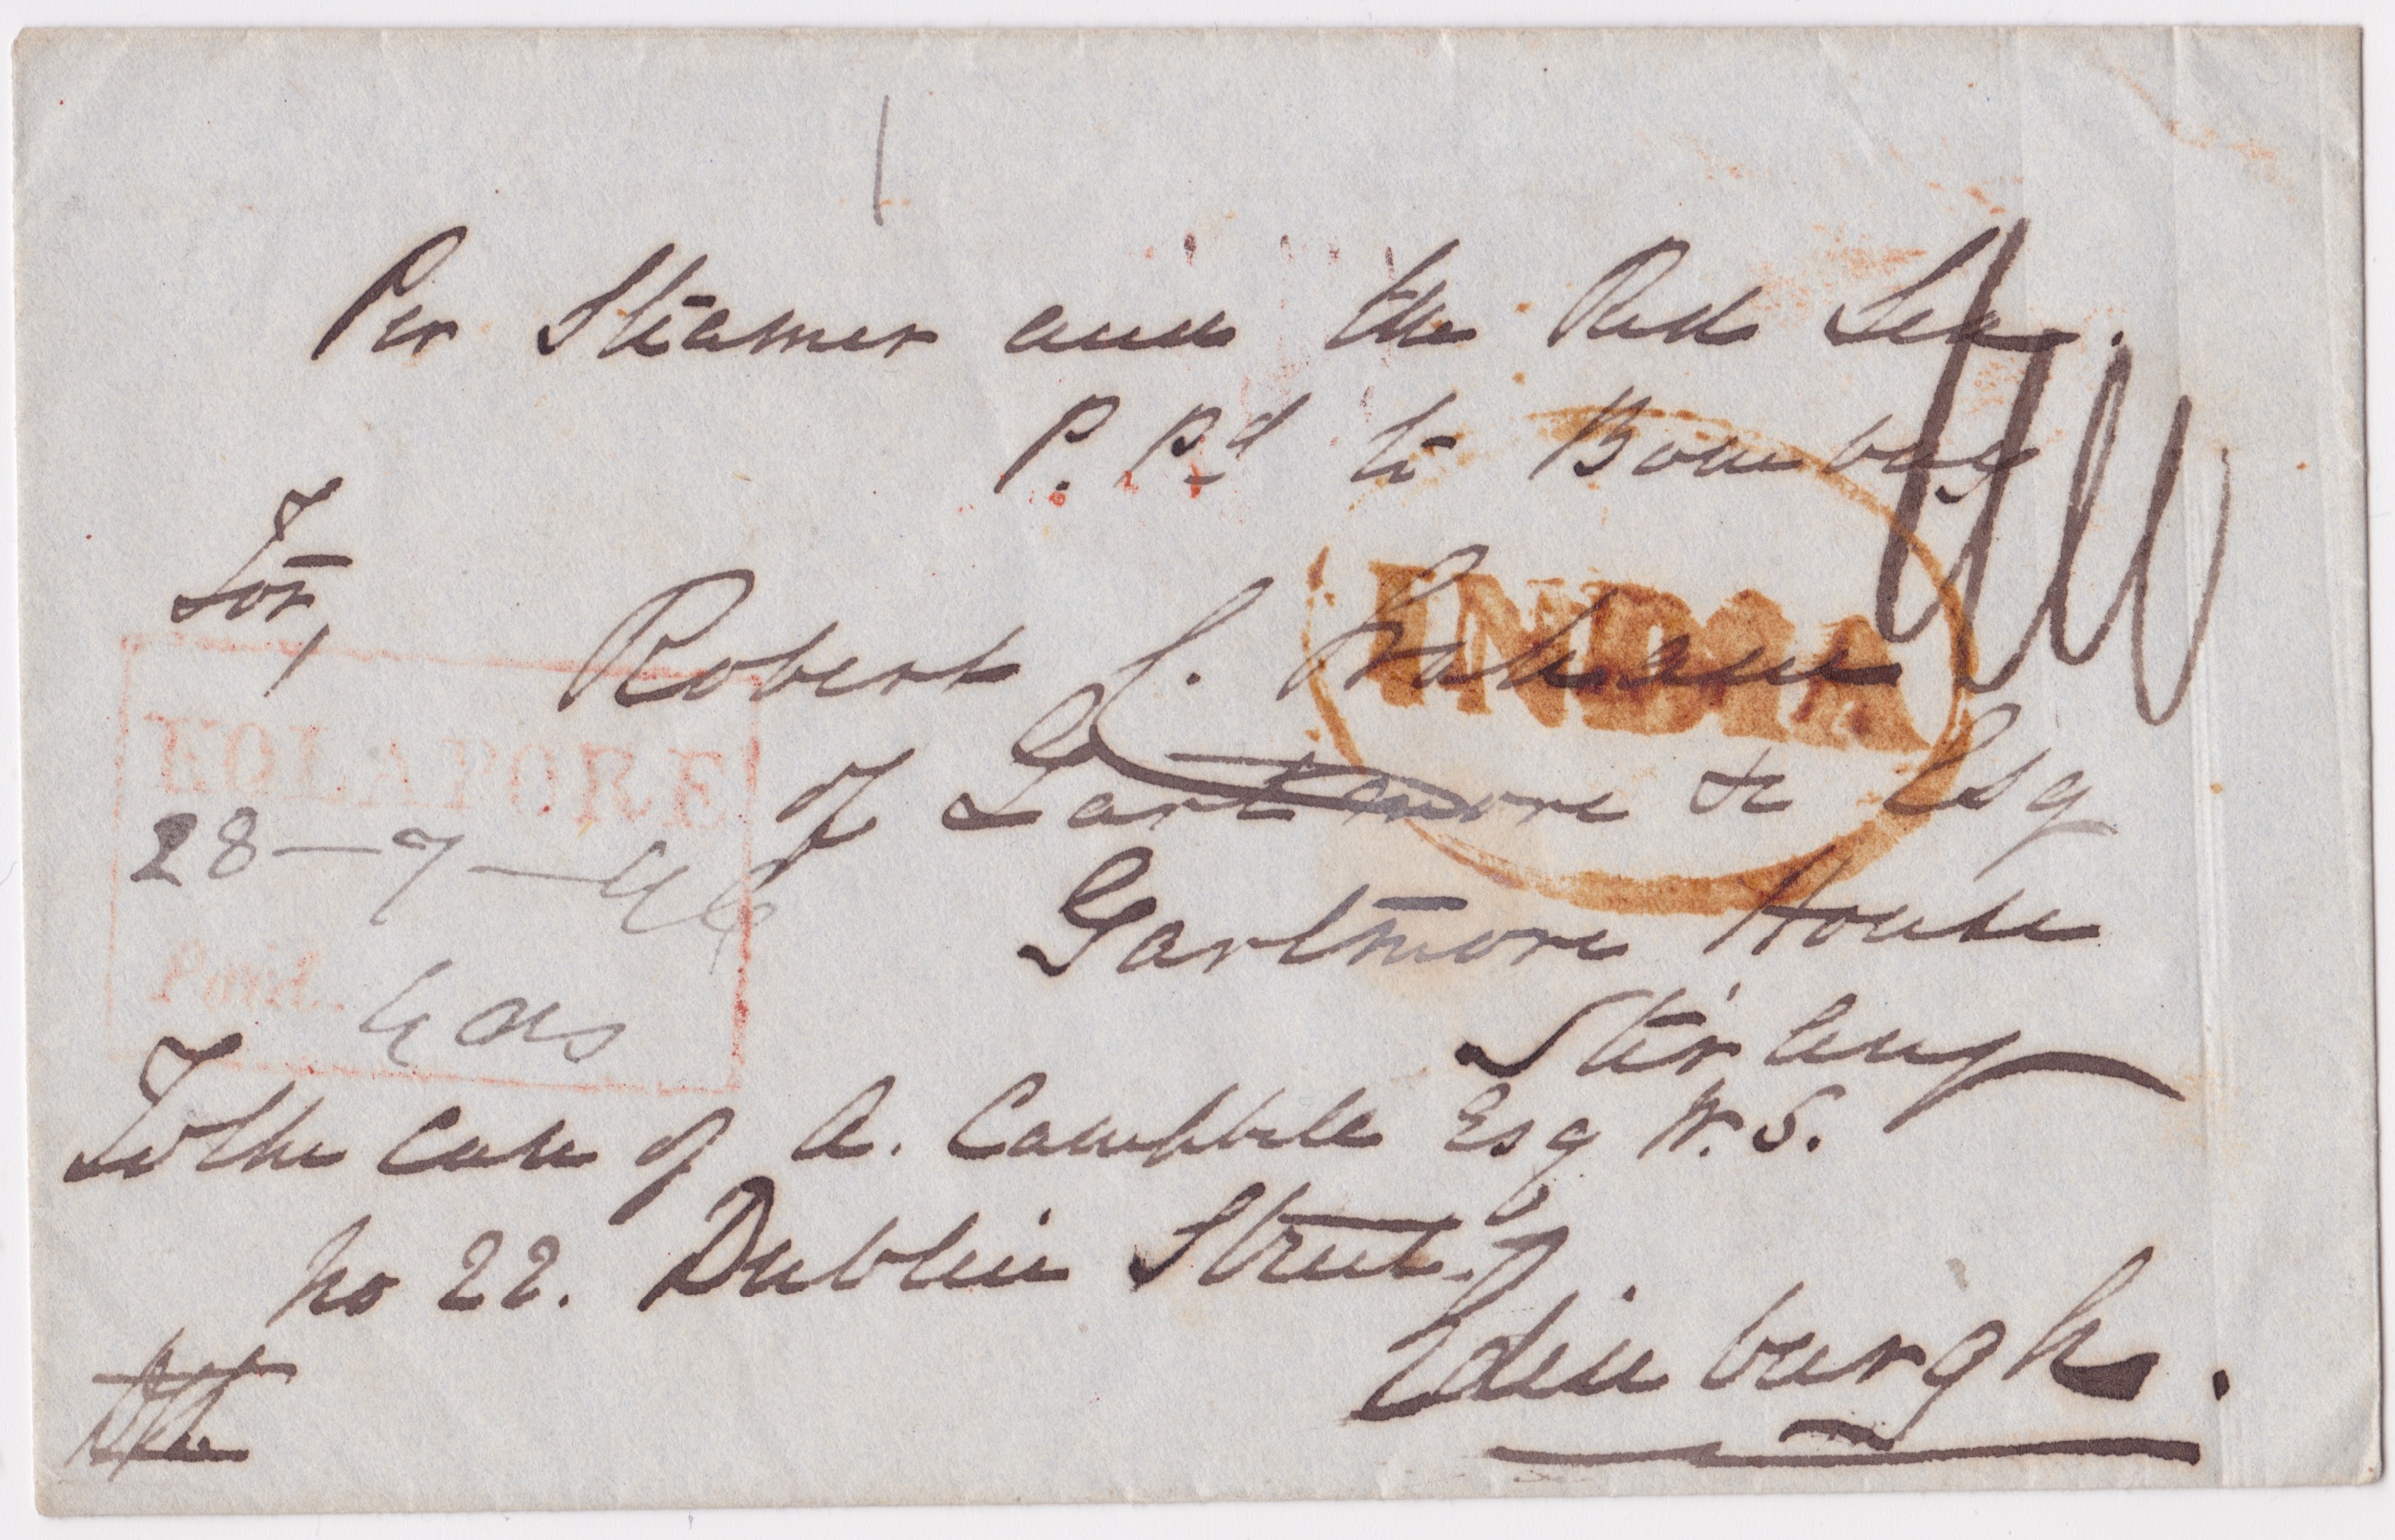 Per Steamer and the Red Sea.
P. Pd to Bombay
For,
Robert C. Graham
INDIA
of Gartmore &c Esq
KOLAPORE
28-7-46
Gartmore House
Paid
Stirling
To the care of A. Campbell Esq W. S.
No 22. Dublin Street
Edinburgh.